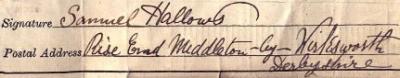 Signature Samuel Hallows
Postal Address Rise End Middleton-by-Wirksworth
Derbyshire